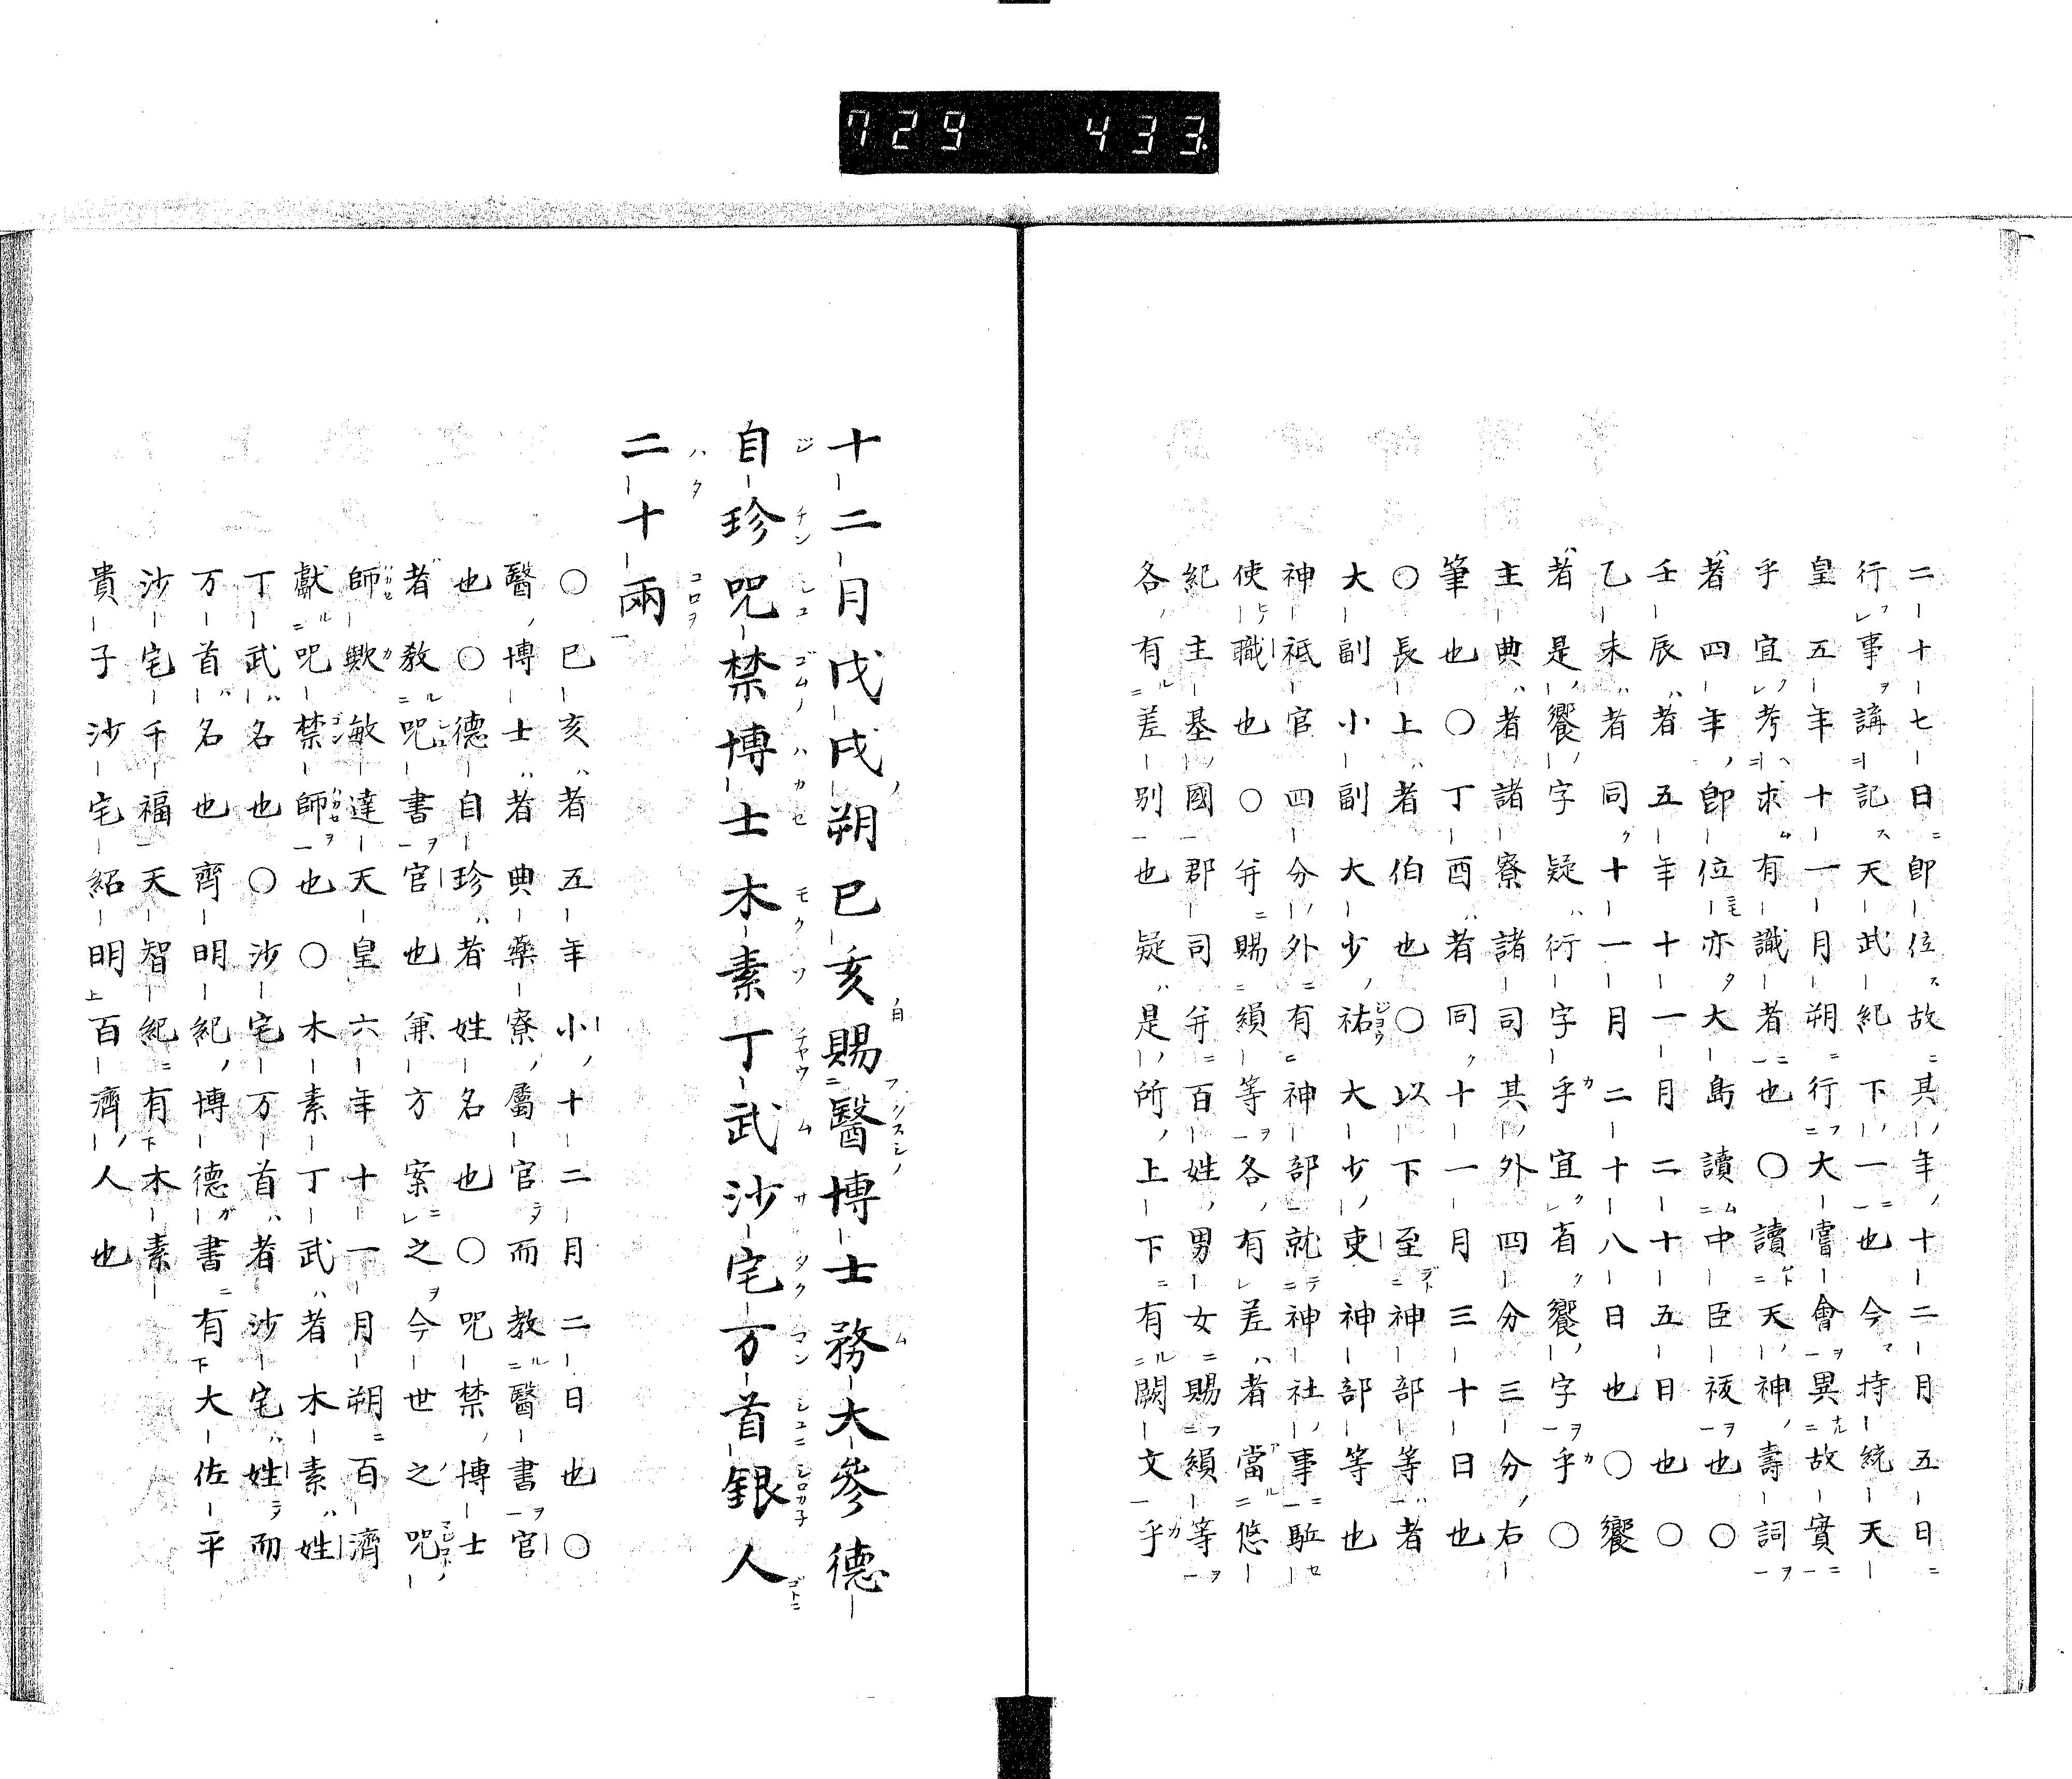 729 433
二十七日即位故其年十二月五日
行事講記天武紀下一也今持統天
皇五年十一月朔行大嘗會異故實
乎宜考求有識者也○讀天神壽詞
者四年即位亦大島讀中臣祓也○
壬辰者五年十一月二十五日也○
乙未者同十一月二十八日也○饗
者是饗字疑衍字乎宜有饗字乎○
主典者諸寮諸司其外四分三分右
筆也○丁酉者同十一月三十日也
○長上者伯也○以下至神部等者
大副小副大少祐大少吏神部等也
神祇官四分外有神部就神社事駈
使職也○并賜絹等各有差者當悠
紀主基國郡司并百姓男女賜絹等
各有差別也疑是所上下有闕文乎
十二月戊戌朔己亥賜醫博士務大參德
自珍呪禁博士木素丁武沙宅万首銀人
二十兩
○巳亥者五年小十二月二日也○
醫博士者典藥寮屬官而教醫書官
也○德自珍者姓名也○呪禁博士
者教呪書官也兼方案之今世之呪
師歟敏達天皇六年十一月朔百濟
獻呪禁師也○木素丁武者木素姓
丁武名也○沙宅万首者沙宅姓而
万首名也齊明紀博德書有大佐平
沙宅千福天智紀有木素
貴子沙宅紹明百濟人也